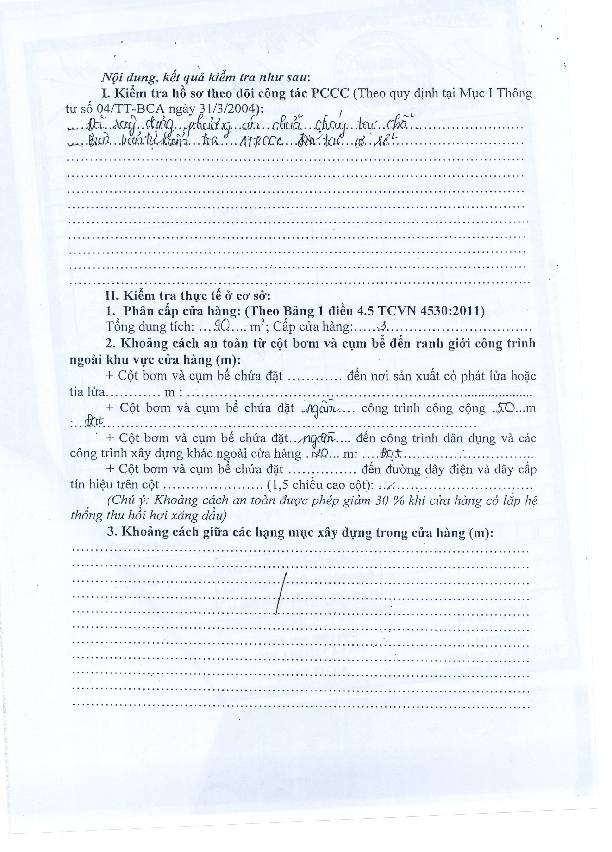 Nội dung, kết quả kiểm tra như sau:
I. Kiểm tra hồ sơ theo dõi công tác PCCC (Theo quy định tại Mục I Thông
tư số 04/TT-BCA ngày 31/3/2004):
Đã xây dựng phương án chữa cháy tại chỗ
II. Kiểm tra thực tế ở cơ sở:
1. Phân cấp cửa hàng: (Theo Bảng 1 điều 4.5 TCVN 4530:2011)
Tổng dung tích: ........ m³; Cấp cửa hàng:......3..............
2. Khoảng cách an toàn từ cột bơm và cụm bể đến ranh giới công trình
ngoài khu vực cửa hàng (m):
+ Cột bơm và cụm bể chứa đặt ............ đến nơi sản xuất có phát lửa hoặc
tia lửa............ m : ..............................
+ Cột bơm và cụm bể chứa đặt ..ngầm.... công trình công cộng ..50...m
:...Đạt..............................
+ Cột bơm và cụm bể chứa đặt...ngầm.... đến công trình dân dụng và các
công trình xây dựng khác ngoài cửa hàng ........ m: .....Đạt..............
+ Cột bơm và cụm bể chứa đặt ............... đến đường dây điện và dây cấp
tín hiệu trên cột ...................... (1,5 chiều cao cột): ..............................
(Chú ý: Khoảng cách an toàn được phép giảm 30 % khi cửa hàng có lắp hệ
thống thu hồi hơi xăng dầu)
3. Khoảng cách giữa các hạng mục xây dựng trong cửa hàng (m):